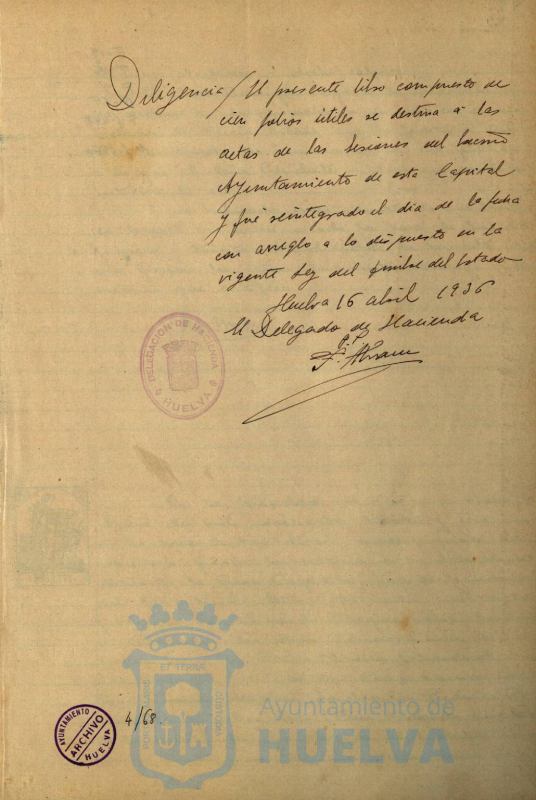 Diligencia / El presente libro compuesto de
cien folios útiles se destina á las
actas de las sesiones del Excmo
Ayuntamiento de esta Capital
y fué reintegrado el dia de la fecha
con arreglo a lo dispuesto en la
vigente Ley del timbre del Estado
Huelva 16 abril 1936
El Delegado de Hacienda
DELEGACION DE HACIENDA
HUELVA
ET TERRAE
PORTUS MARIS
CUSTODIA
Ayuntamiento de
HUELVA
AYUNTAMIENTO
ARCHIVO
HUELVA
4/68